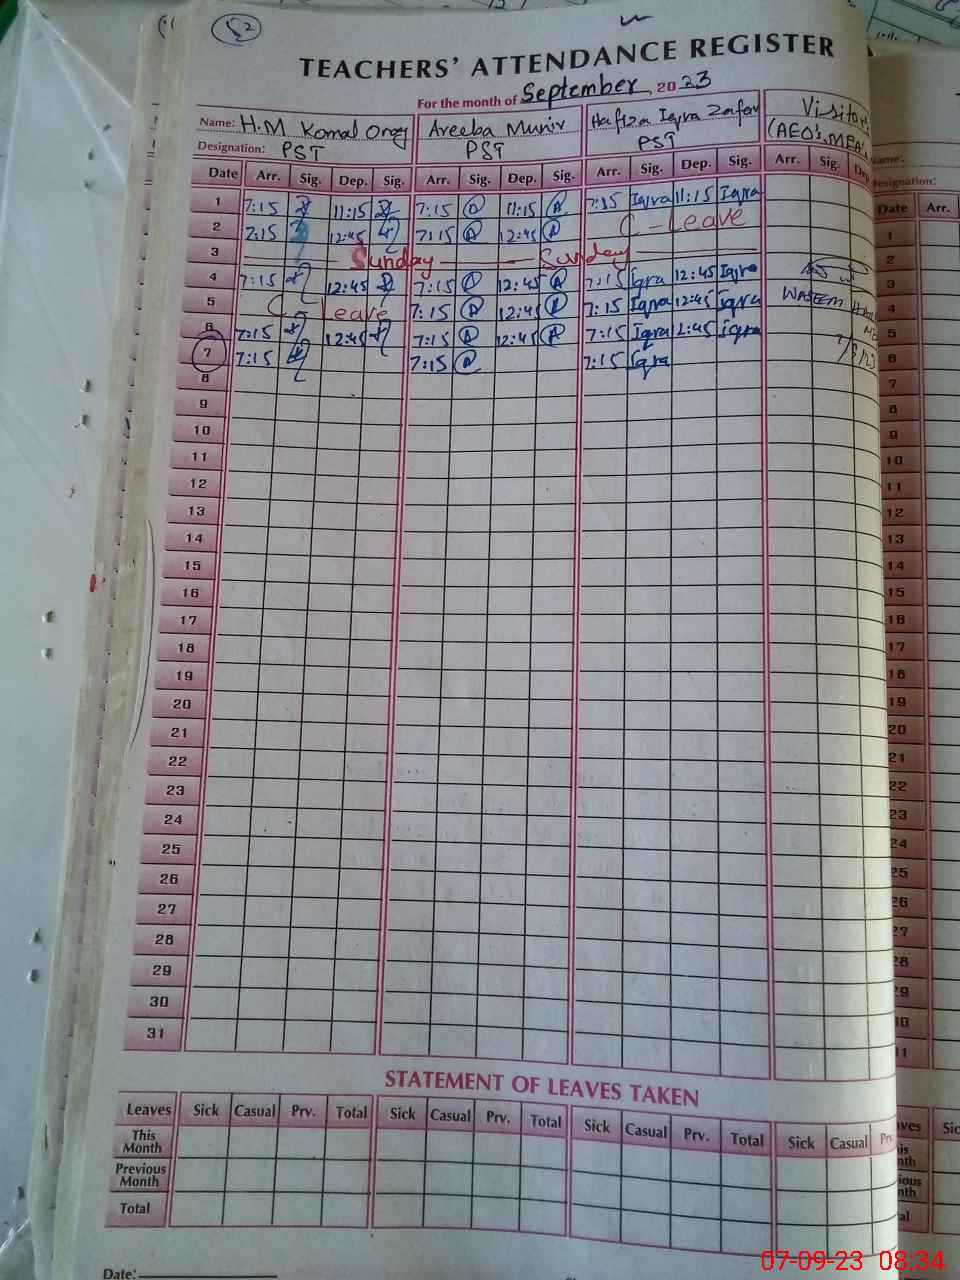 52
TEACHERS' ATTENDANCE REGISTER
For the month of September, 2023
Name: H.M Komal Areeba Munir Hafiza Iqra Zafar Visitor
Designation: PST PST PST (AEO's, MEA's
Date Arr. Sig. Dep. Sig. Arr. Sig. Dep. Sig. Arr. Sig. Dep. Sig. Arr. Sig. Dep
1 7:15 11:15 7:15 A 11:15 A 7:15 Iqra 11:15 Iqra
2 7:15 12:45 7:15 A 12:45 A C-Leave
3 Sunday Sunday
4 7:15 12:45 7:15 A 12:45 A 7:15 Iqra 12:45 Iqra
5 C Leave 7:15 A 12:45 A 7:15 Iqra 12:45 Iqra WASEEM
6 7:15 12:45 7:15 A 12:45 A 7:15 Iqra 12:45 iqra
7 7:15 7:15 A 7:15 Iqra
8
9
10
11
12
13
14
15
16
17
18
19
20
21
22
23
24
25
26
27
28
29
30
31
STATEMENT OF LEAVES TAKEN
Leaves Sick Casual Prv. Total Sick Casual Prv. Total Sick Casual Prv. Total Sick Casual Prv.
This Month
Previous Month
Total
Date:
Name:
Designation:
Date Arr.
1
2
3
4
5
6
7
8
9
10
11
12
13
14
15
16
17
18
19
20
21
22
23
24
25
26
27
28
29
07-09-23 08:34